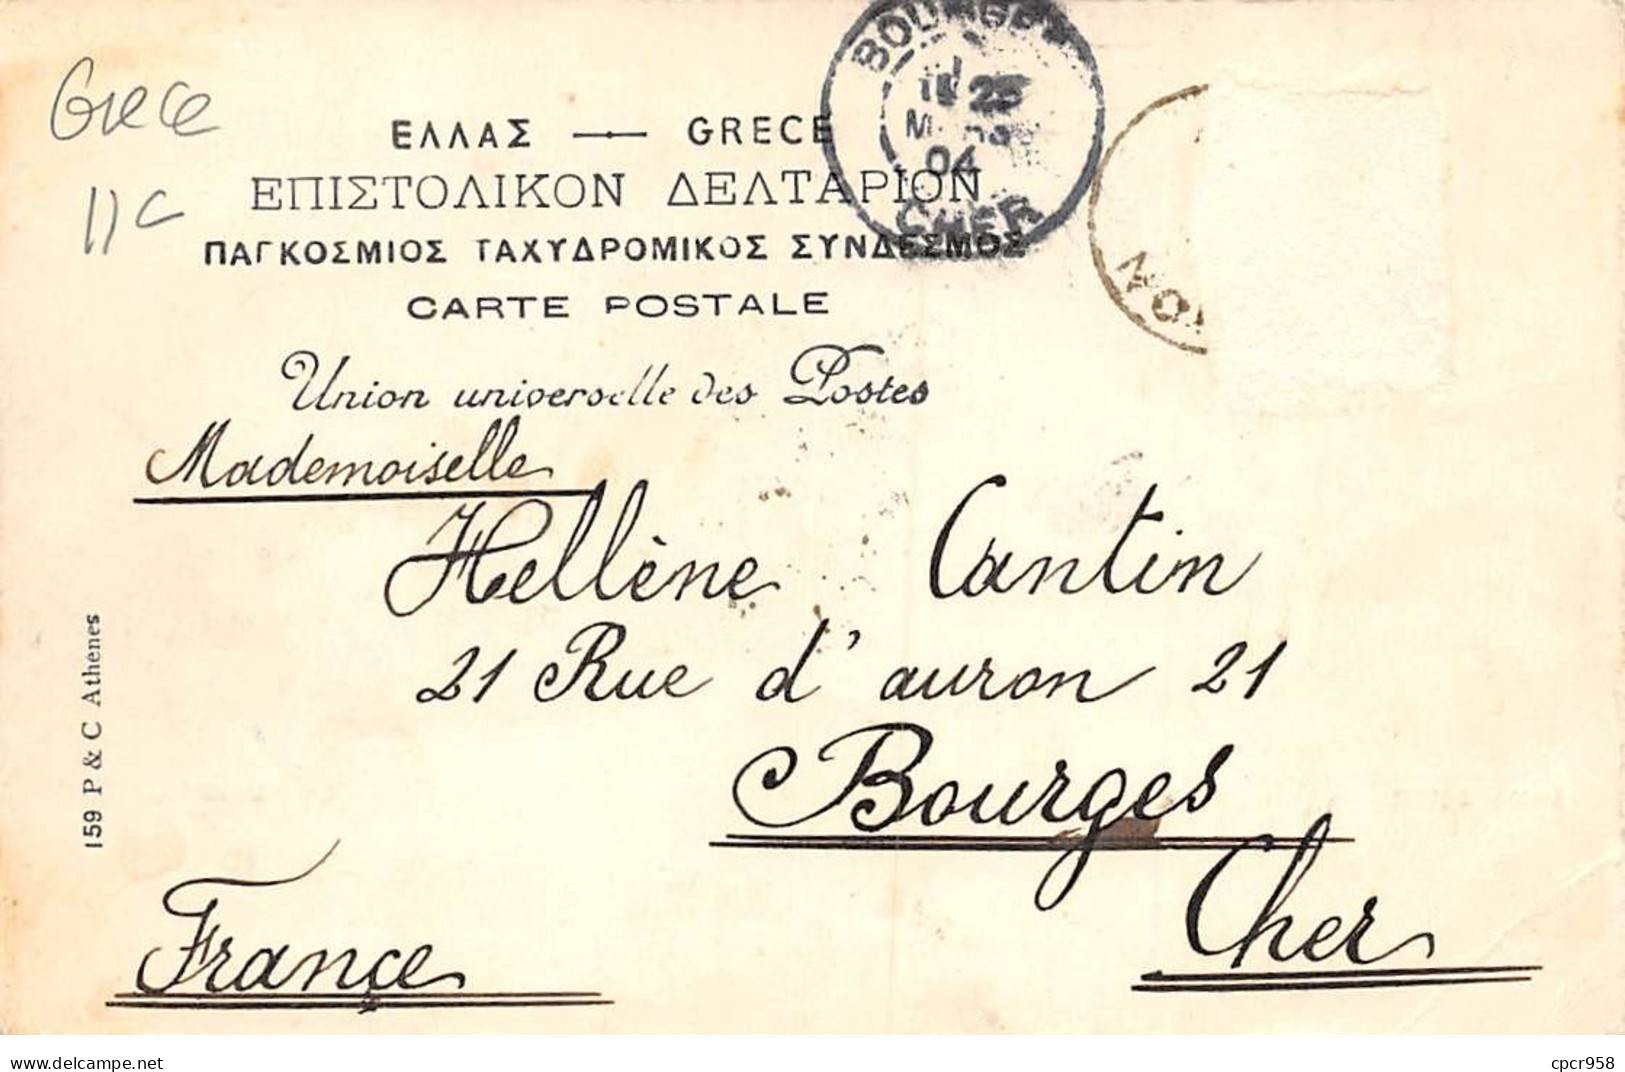 Grece
11 c
ΕΛΛΑΣ — GRECE
ΕΠΙΣΤΟΛΙΚΟΝ ΔΕΛΤΑΡΙΟΝ
ΠΑΓΚΟΣΜΙΟΣ ΤΑΧΥΔΡΟΜΙΚΟΣ ΣΥΝΔΕΣΜΟΣ
CARTE POSTALE
Union universelle des Postes
BOURGES
25
04
CHER
Mademoiselle
Hellène Cantin
21 Rue d'auron 21
Bourges
Cher
France
159 P & C Athenes
delcampe.net
cpcr958